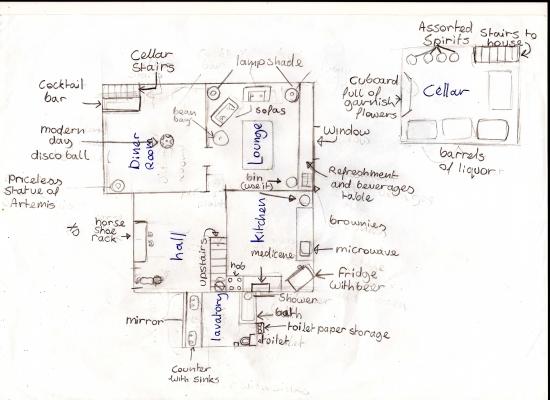 Assorted
Spirits
Stairs to
house
Cellar
Stairs
lampshade
Cocktail
bar
Cuboard
full of
garnish
flowers
Cellar
sofas
bean
bag
modern
day
disco ball
Diner
Room
Lounge
Window
barrels
of liquor
Priceless
Statue of
Artemis
bin
(use it)
Refreshment
and beverages
table
horse
shoe
rack
hall
kitchen
brownies
upstairs
medicene
microwave
hob
Fridge
with beer
mirror
lavatory
Shower
bath
toilet paper storage
toilet
Counter
with sinks